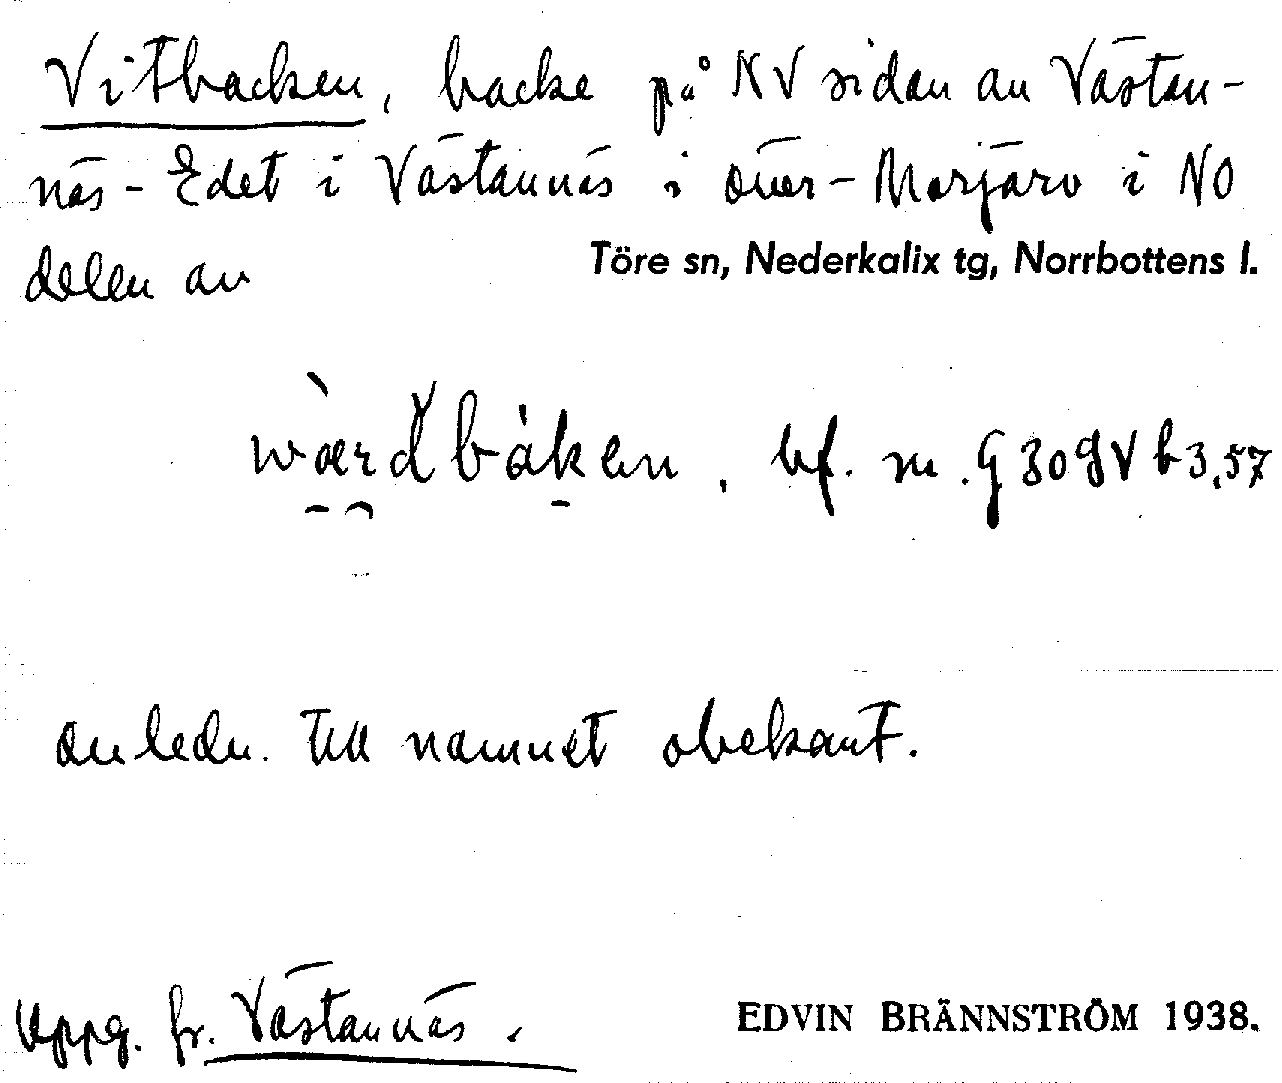 Vitbacken, backe på NV sidan av Västan-
näs-Edet i Västannäs i över-Morjärv i NO
delen av Töre sn, Nederkalix tg, Norrbottens l.
bf. m.
anledn. till namnet obekant.
Uppg. fr. Västannäs.
EDVIN BRÄNNSTRÖM 1938.